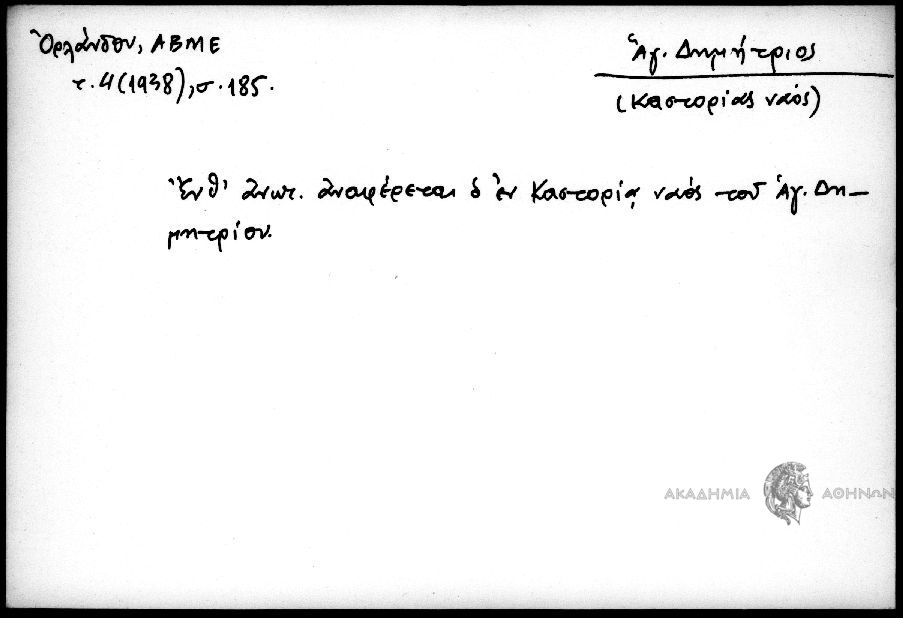 Ὀρλάνδου, ΑΒΜΕ
τ. 4 (1938), σ. 185.
Ἅγ. Δημήτριος
(Καστορίας ναός)
Ἔνθ' ἀνωτ. ἀναφέρεται ὁ ἐν Καστορίᾳ ναός τοῦ Ἁγ. Δη-
μητρίου.
ΑΚΑΔΗΜΙΑ ΑΘΗΝΩΝ